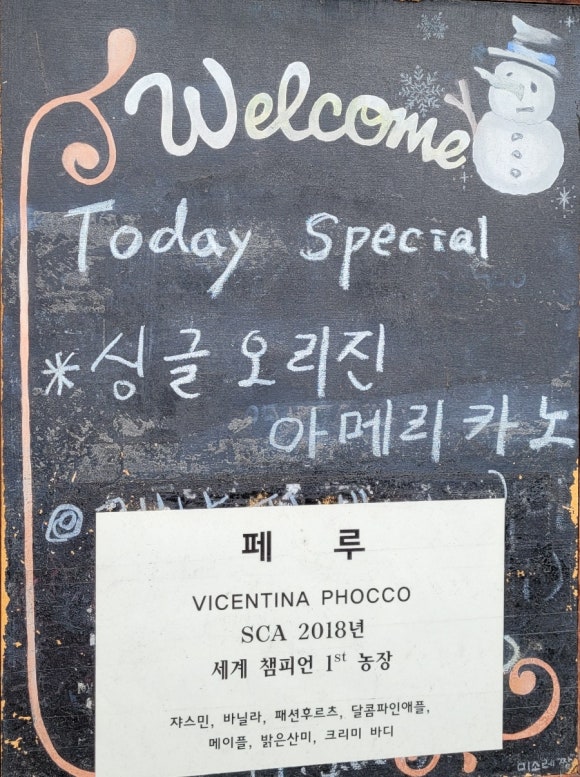 Welcome
Today Special
*싱글 오리진
아메리카노
페 루
VICENTINA PHOCCO
SCA 2018년
세계 챔피언 1st 농장
쟈스민, 바닐라, 패션후르츠, 달콤파인애플,
메이플, 밝은산미, 크리미 바디